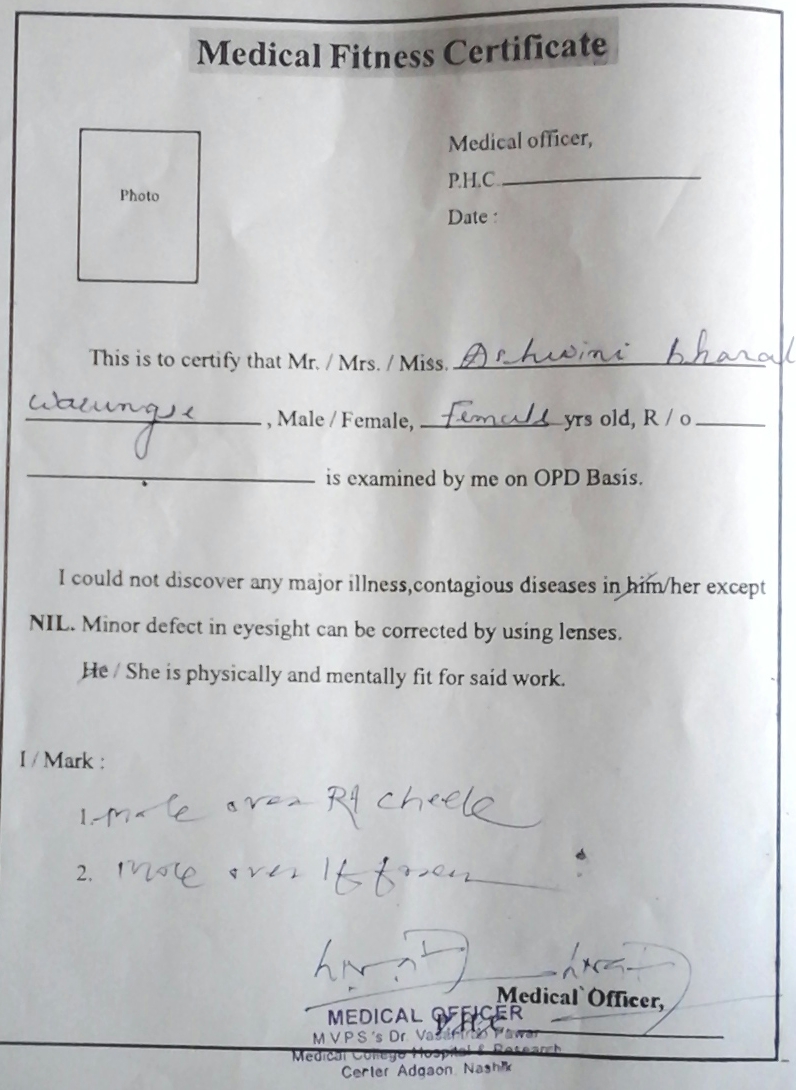 Medical Fitness Certificate
Photo
Medical officer,
P.H.C.
Date :
This is to certify that Mr. / Mrs. / Miss. Ashwini bharat
, Male / Female, Female yrs old, R / o
is examined by me on OPD Basis.
I could not discover any major illness,contagious diseases in him/her except
NIL. Minor defect in eyesight can be corrected by using lenses.
He / She is physically and mentally fit for said work.
I / Mark :
1. mole over Rt cheek
2. mole over lt
Medical Officer,
P.H.C.
MEDICAL OFFICER
MVPS's Dr. Vasantrao Pawar
Medical College Hospital & Research
Center Adgaon, Nashik